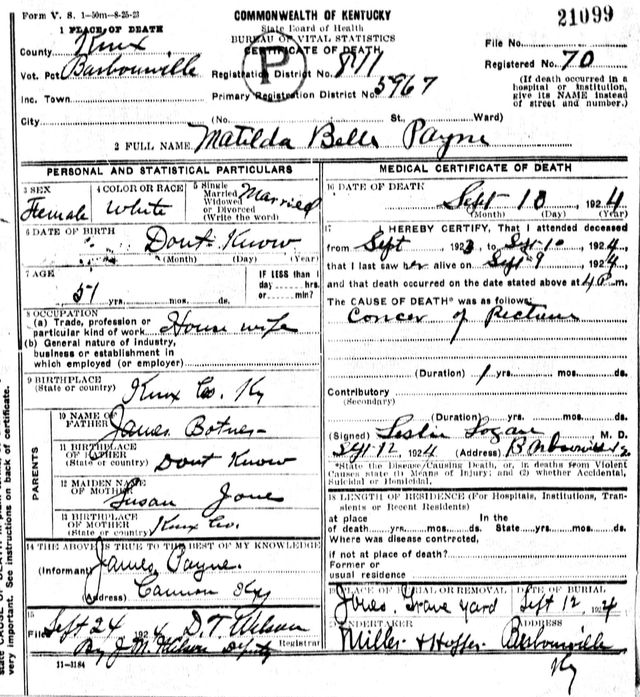 Form V. S. 1-50m-8-25-23
COMMONWEALTH OF KENTUCKY
21099
1 PLACE OF DEATH
State Board of Health
BUREAU OF VITAL STATISTICS
CERTIFICATE OF DEATH
File No.
County Knux
P
Registered No. 70
Vot. Pct. Barbourville
Registration District No. 811
(If death occurred in a hospital or institution, give its NAME instead of street and number.)
Inc. Town
Primary Registration District No. 5967
City (No. St. Ward)
2 FULL NAME Matilda Belle Payne
PERSONAL AND STATISTICAL PARTICULARS
3 SEX Female
4 COLOR OR RACE White
5 Single Married Widowed or Divorced (Write the word) Married
6 DATE OF BIRTH Dont Know
(Month) (Day) (Year)
7 AGE 51 yrs. mos. ds.
IF LESS than 1 day hrs. or min?
8 OCCUPATION
(a) Trade, profession or particular kind of work House wife
(b) General nature of industry, business or establishment in which employed (or employer)
9 BIRTHPLACE (State or country) Knux Co. Ky
PARENTS
10 NAME OF FATHER James Botner
11 BIRTHPLACE OF FATHER (State or country) Dont Know
12 MAIDEN NAME OF MOTHER Susan Jone
13 BIRTHPLACE OF MOTHER (State or country) Knux Co.
14 THE ABOVE IS TRUE TO THE BEST OF MY KNOWLEDGE
(Informant) James Payne
(Address) Cannon Ky
15
Filed Sept 24 1924 D. T. Wilson
By J M Wilson Deputy Registrar
11-3184
MEDICAL CERTIFICATE OF DEATH
16 DATE OF DEATH Sept 10 1924
(Month) (Day) (Year)
17 I HEREBY CERTIFY, That I attended deceased
from Sept 1923, to Sept 10 1924
that I last saw her alive on Sept 9 1924
and that death occurred on the date stated above at 4 P m.
The CAUSE OF DEATH* was as follows:
Concer of Rectum
(Duration) 1 yrs. mos. ds.
Contributory (Secondary)
(Duration) yrs. mos. ds.
(Signed) Leslie Logan M. D.
Sept 12, 1924 (Address) Barbourville
*State the Disease Causing Death, or, in deaths from Violent Causes, state (1) Means of Injury; and (2) whether Accidental, Suicidal or Homicidal.
18 LENGTH OF RESIDENCE (For Hospitals, Institutions, Transients or Recent Residents)
at place of death yrs. mos. ds. In the State yrs. mos. ds.
Where was disease contrected,
if not at place of death?
Former or usual residence
19 PLACE OF BURIAL OR REMOVAL Jones Grave Yard
DATE OF BURIAL Sept 12, 1924
20 UNDERTAKER Miller & Hoffer
ADDRESS Barbourville Ky
very important. See instructions on back of certificate.